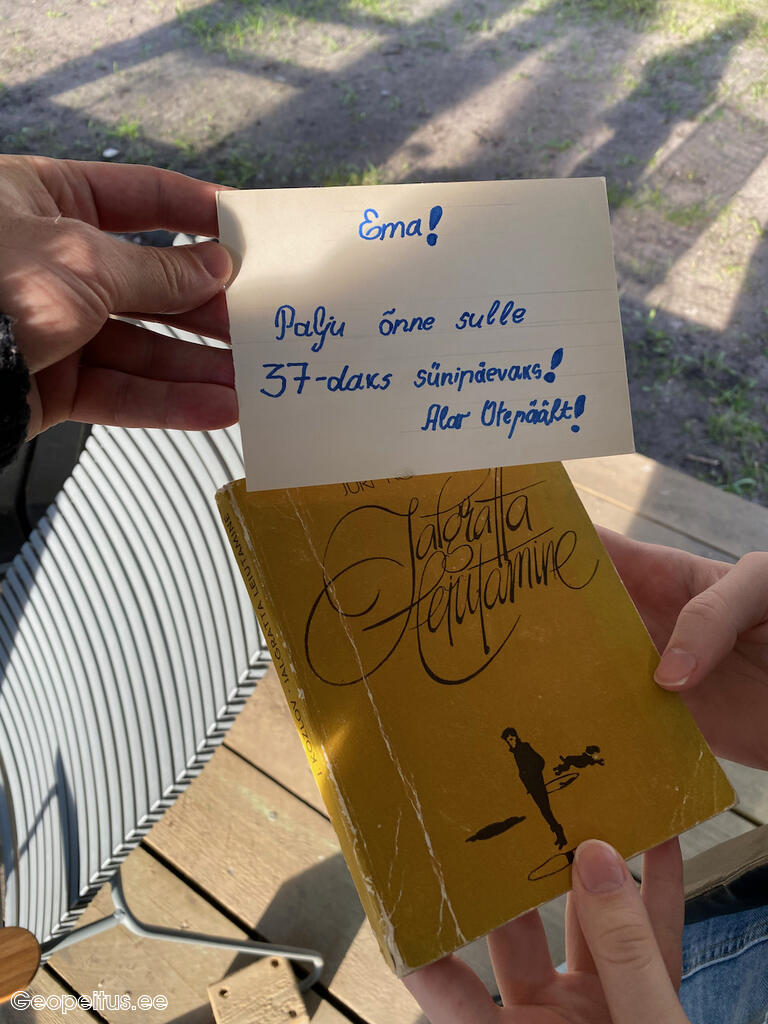 Ema!
Palju õnne sulle
37-daks sünipäevaks!
Alar Otepäält!
JÜRI
Jalgratta
leiutamine
J. KOZLOV · JALGRATTA LEIUTAMINE
Geopeitus.ee